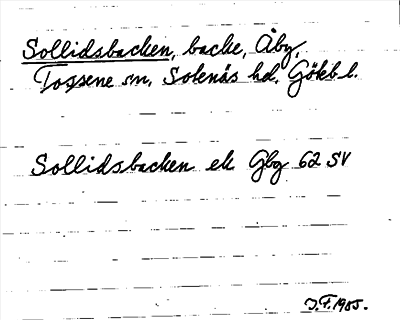 Sollidsbacken, backe, Åby,
Tossene sn, Sotenäs hd, Göteb l.
Sollidsbacken ek Gbg 62 SV
J.F. 1985.